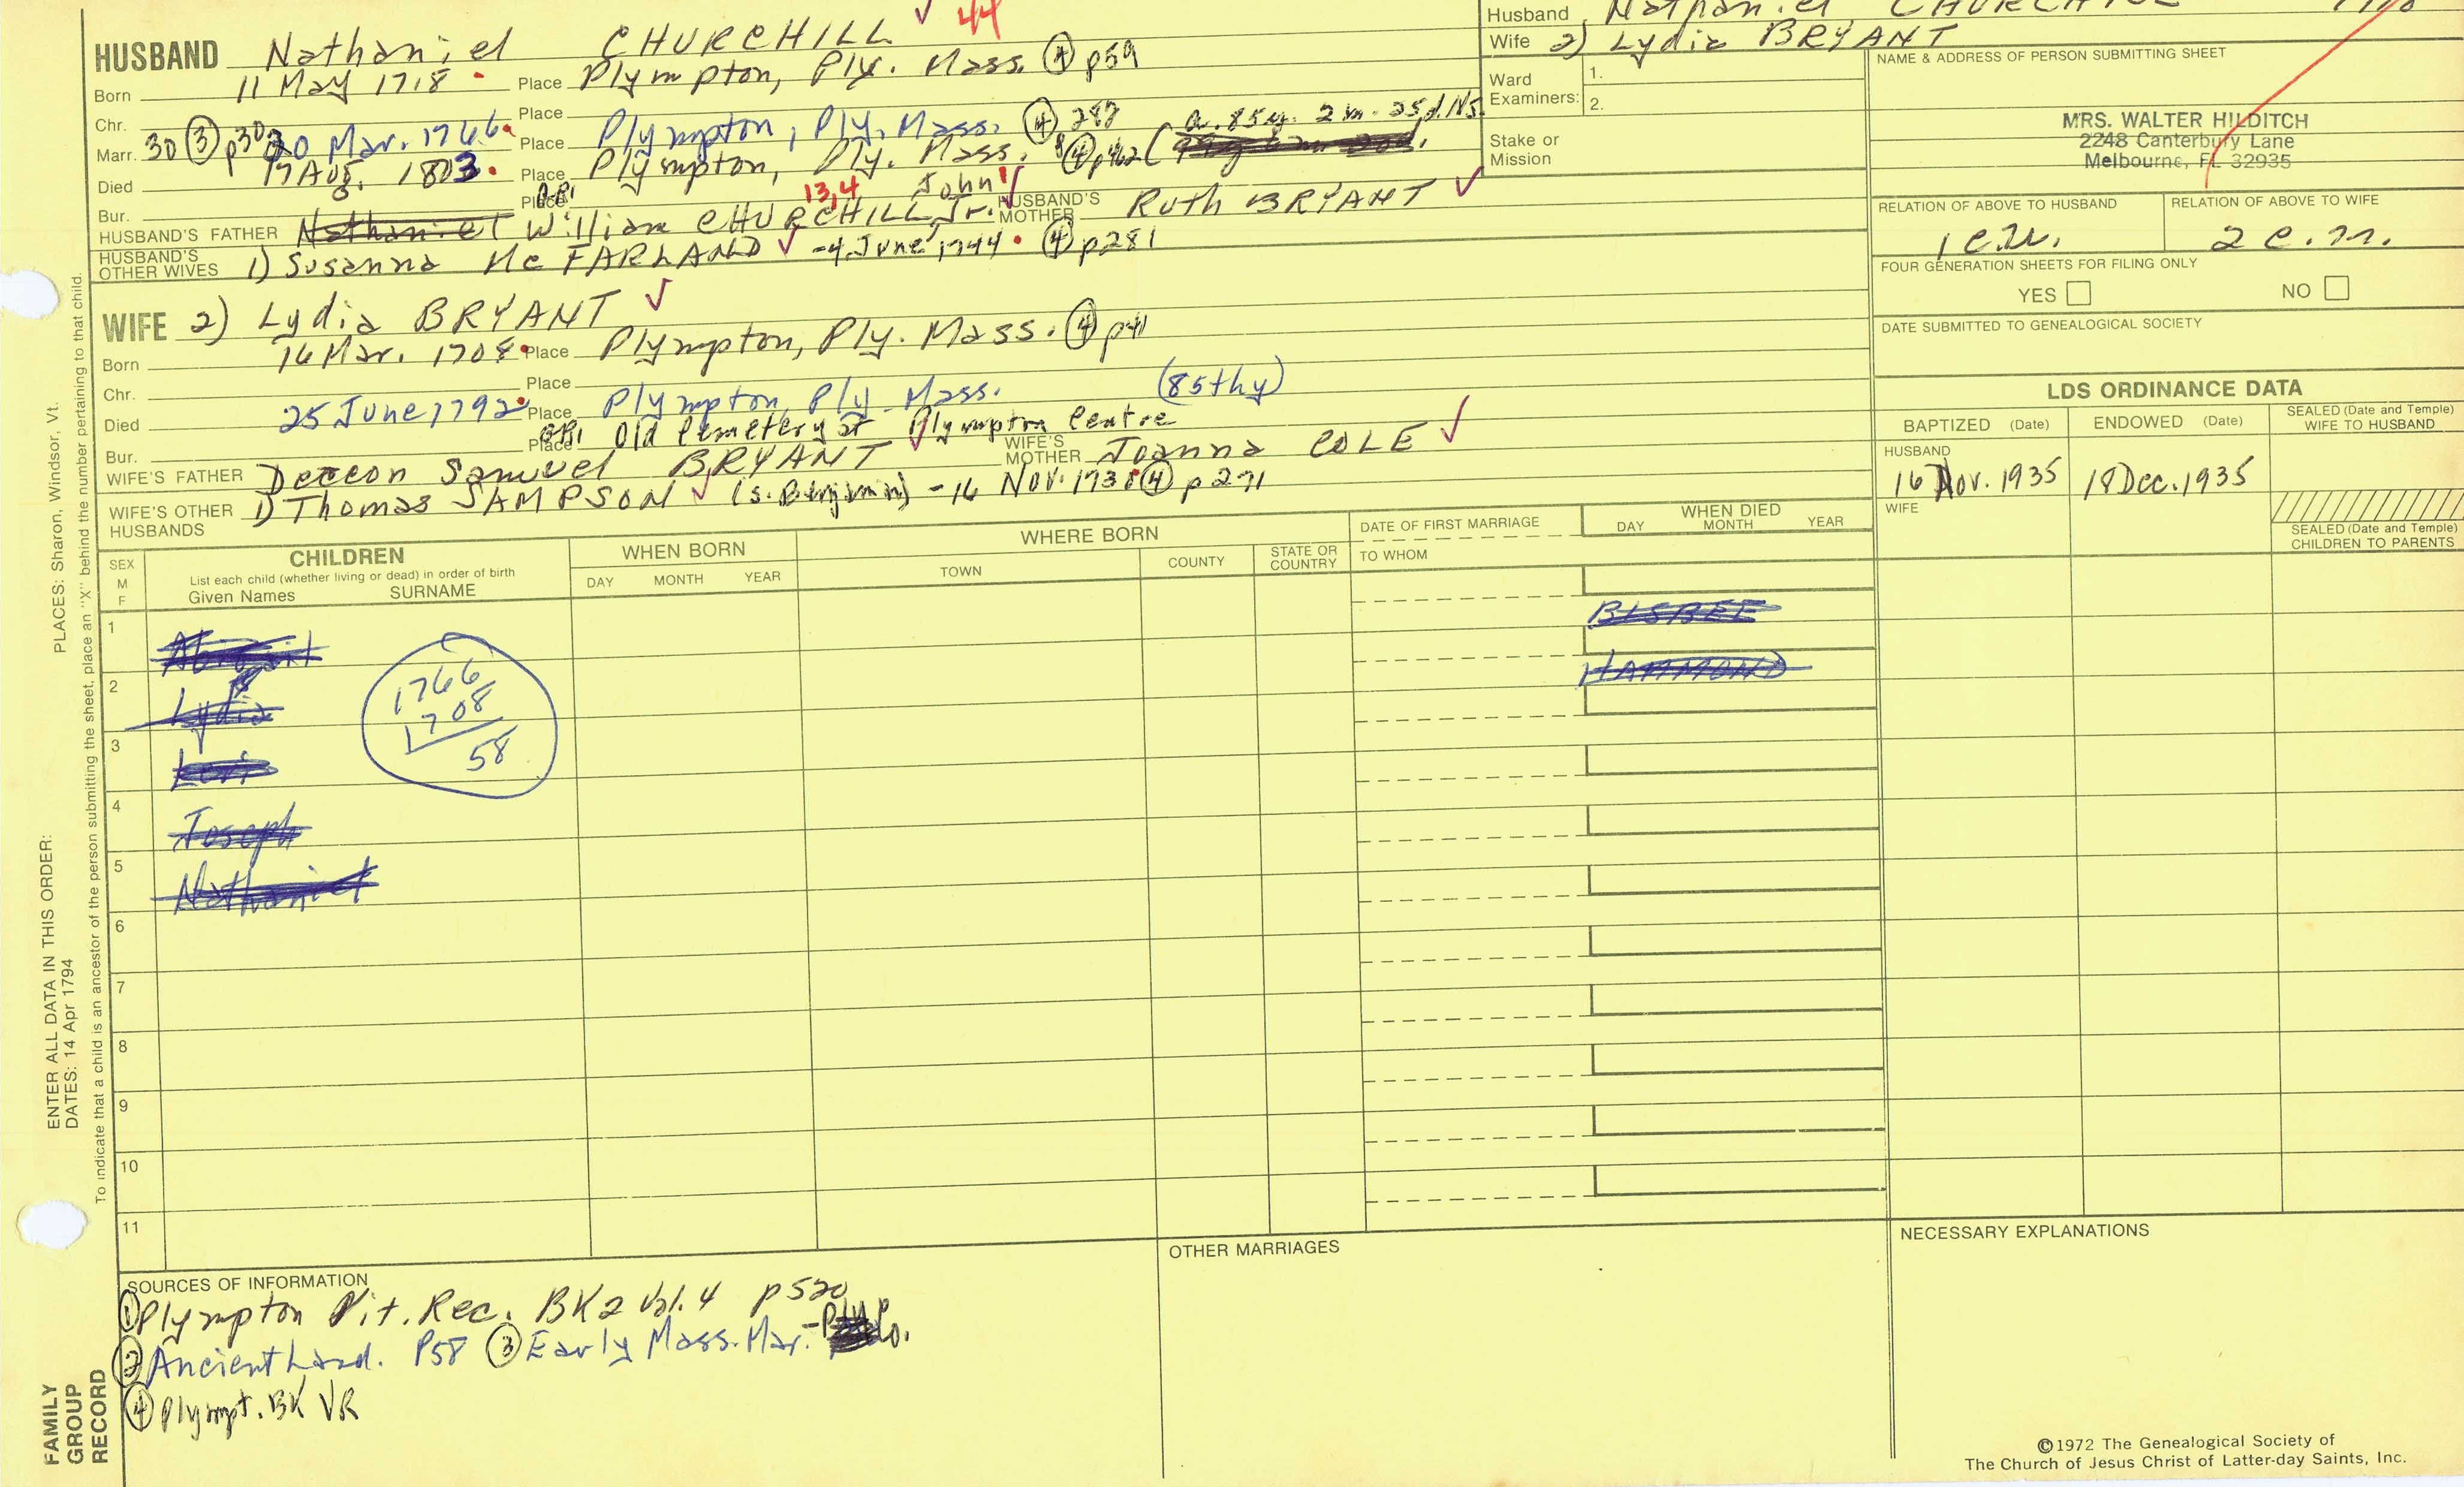 HUSBAND Nathaniel CHURCHILL ✓ 44
Born 11 May 1718 Place Plympton, Ply. Mass. ④ p59
Chr. Place
Marr. 30 ③ p30 20 Mar. 1766 Place Plympton, Ply. Mass. ④ 287 a. 85 y. 2 m. 25 d. NS
Died 17 Aug. 1803 Place Plympton, Ply. Mass. ④ p462
Bur. Place G.R1 13,4 John
HUSBAND'S FATHER Nathaniel William CHURCHILL Jr. HUSBAND'S MOTHER Ruth BRYANT ✓
HUSBAND'S OTHER WIVES 1) Susanna McFARLAND ✓ -4 June 1744 ④ p281
WIFE 2) Lydia BRYANT ✓
Born 16 Mar. 1708 Place Plympton, Ply. Mass. ④ p41
Chr. Place
Died 25 June 1792 Place Plympton Ply. Mass. (85thy)
Bur. Place G.R1 Old Cemetery at Plympton Centre
WIFE'S FATHER Deacon Samuel BRYANT WIFE'S MOTHER Joanna COLE ✓
WIFE'S OTHER HUSBANDS 1) Thomas SAMPSON ✓ (s. Benjamin) - 16 Nov. 1738 ④ p271
Husband Nathaniel CHURCHILL
Wife 2) Lydia BRYANT
Ward Examiners: 1.
2.
Stake or Mission
NAME & ADDRESS OF PERSON SUBMITTING SHEET
MRS. WALTER HILDITCH
2248 Canterbury Lane
Melbourne, FL 32935
RELATION OF ABOVE TO HUSBAND RELATION OF ABOVE TO WIFE
FOUR GENERATION SHEETS FOR FILING ONLY
YES NO
DATE SUBMITTED TO GENEALOGICAL SOCIETY
LDS ORDINANCE DATA
BAPTIZED (Date) ENDOWED (Date) SEALED (Date and Temple) WIFE TO HUSBAND
HUSBAND
16 Nov. 1935 18 Dec. 1935
WIFE
SEALED (Date and Temple) CHILDREN TO PARENTS
SEX M F
CHILDREN
List each child (whether living or dead) in order of birth
Given Names SURNAME
WHEN BORN
DAY MONTH YEAR
WHERE BORN
TOWN COUNTY STATE OR COUNTRY
DATE OF FIRST MARRIAGE
TO WHOM
WHEN DIED
DAY MONTH YEAR
1 Abigail BISBEE
2 Lydia HAMMOND
1766
1708
58
3 Levi
4 Joseph
5 Nathaniel
6
7
8
9
10
11
SOURCES OF INFORMATION
① Plympton Vit. Rec. BK2 Vol. 4 p520
② Ancient Land. P58 ③ Early Mass. Mar. - Co.
④ Plympt. BK VR
OTHER MARRIAGES
NECESSARY EXPLANATIONS
©1972 The Genealogical Society of
The Church of Jesus Christ of Latter-day Saints, Inc.
PLACES: Sharon, Windsor, Vt.
ENTER ALL DATA IN THIS ORDER:
DATES: 14 Apr 1794
To indicate that a child is an ancestor of the person submitting the sheet, place an "X" behind the number pertaining to that child.
FAMILY
GROUP
RECORD